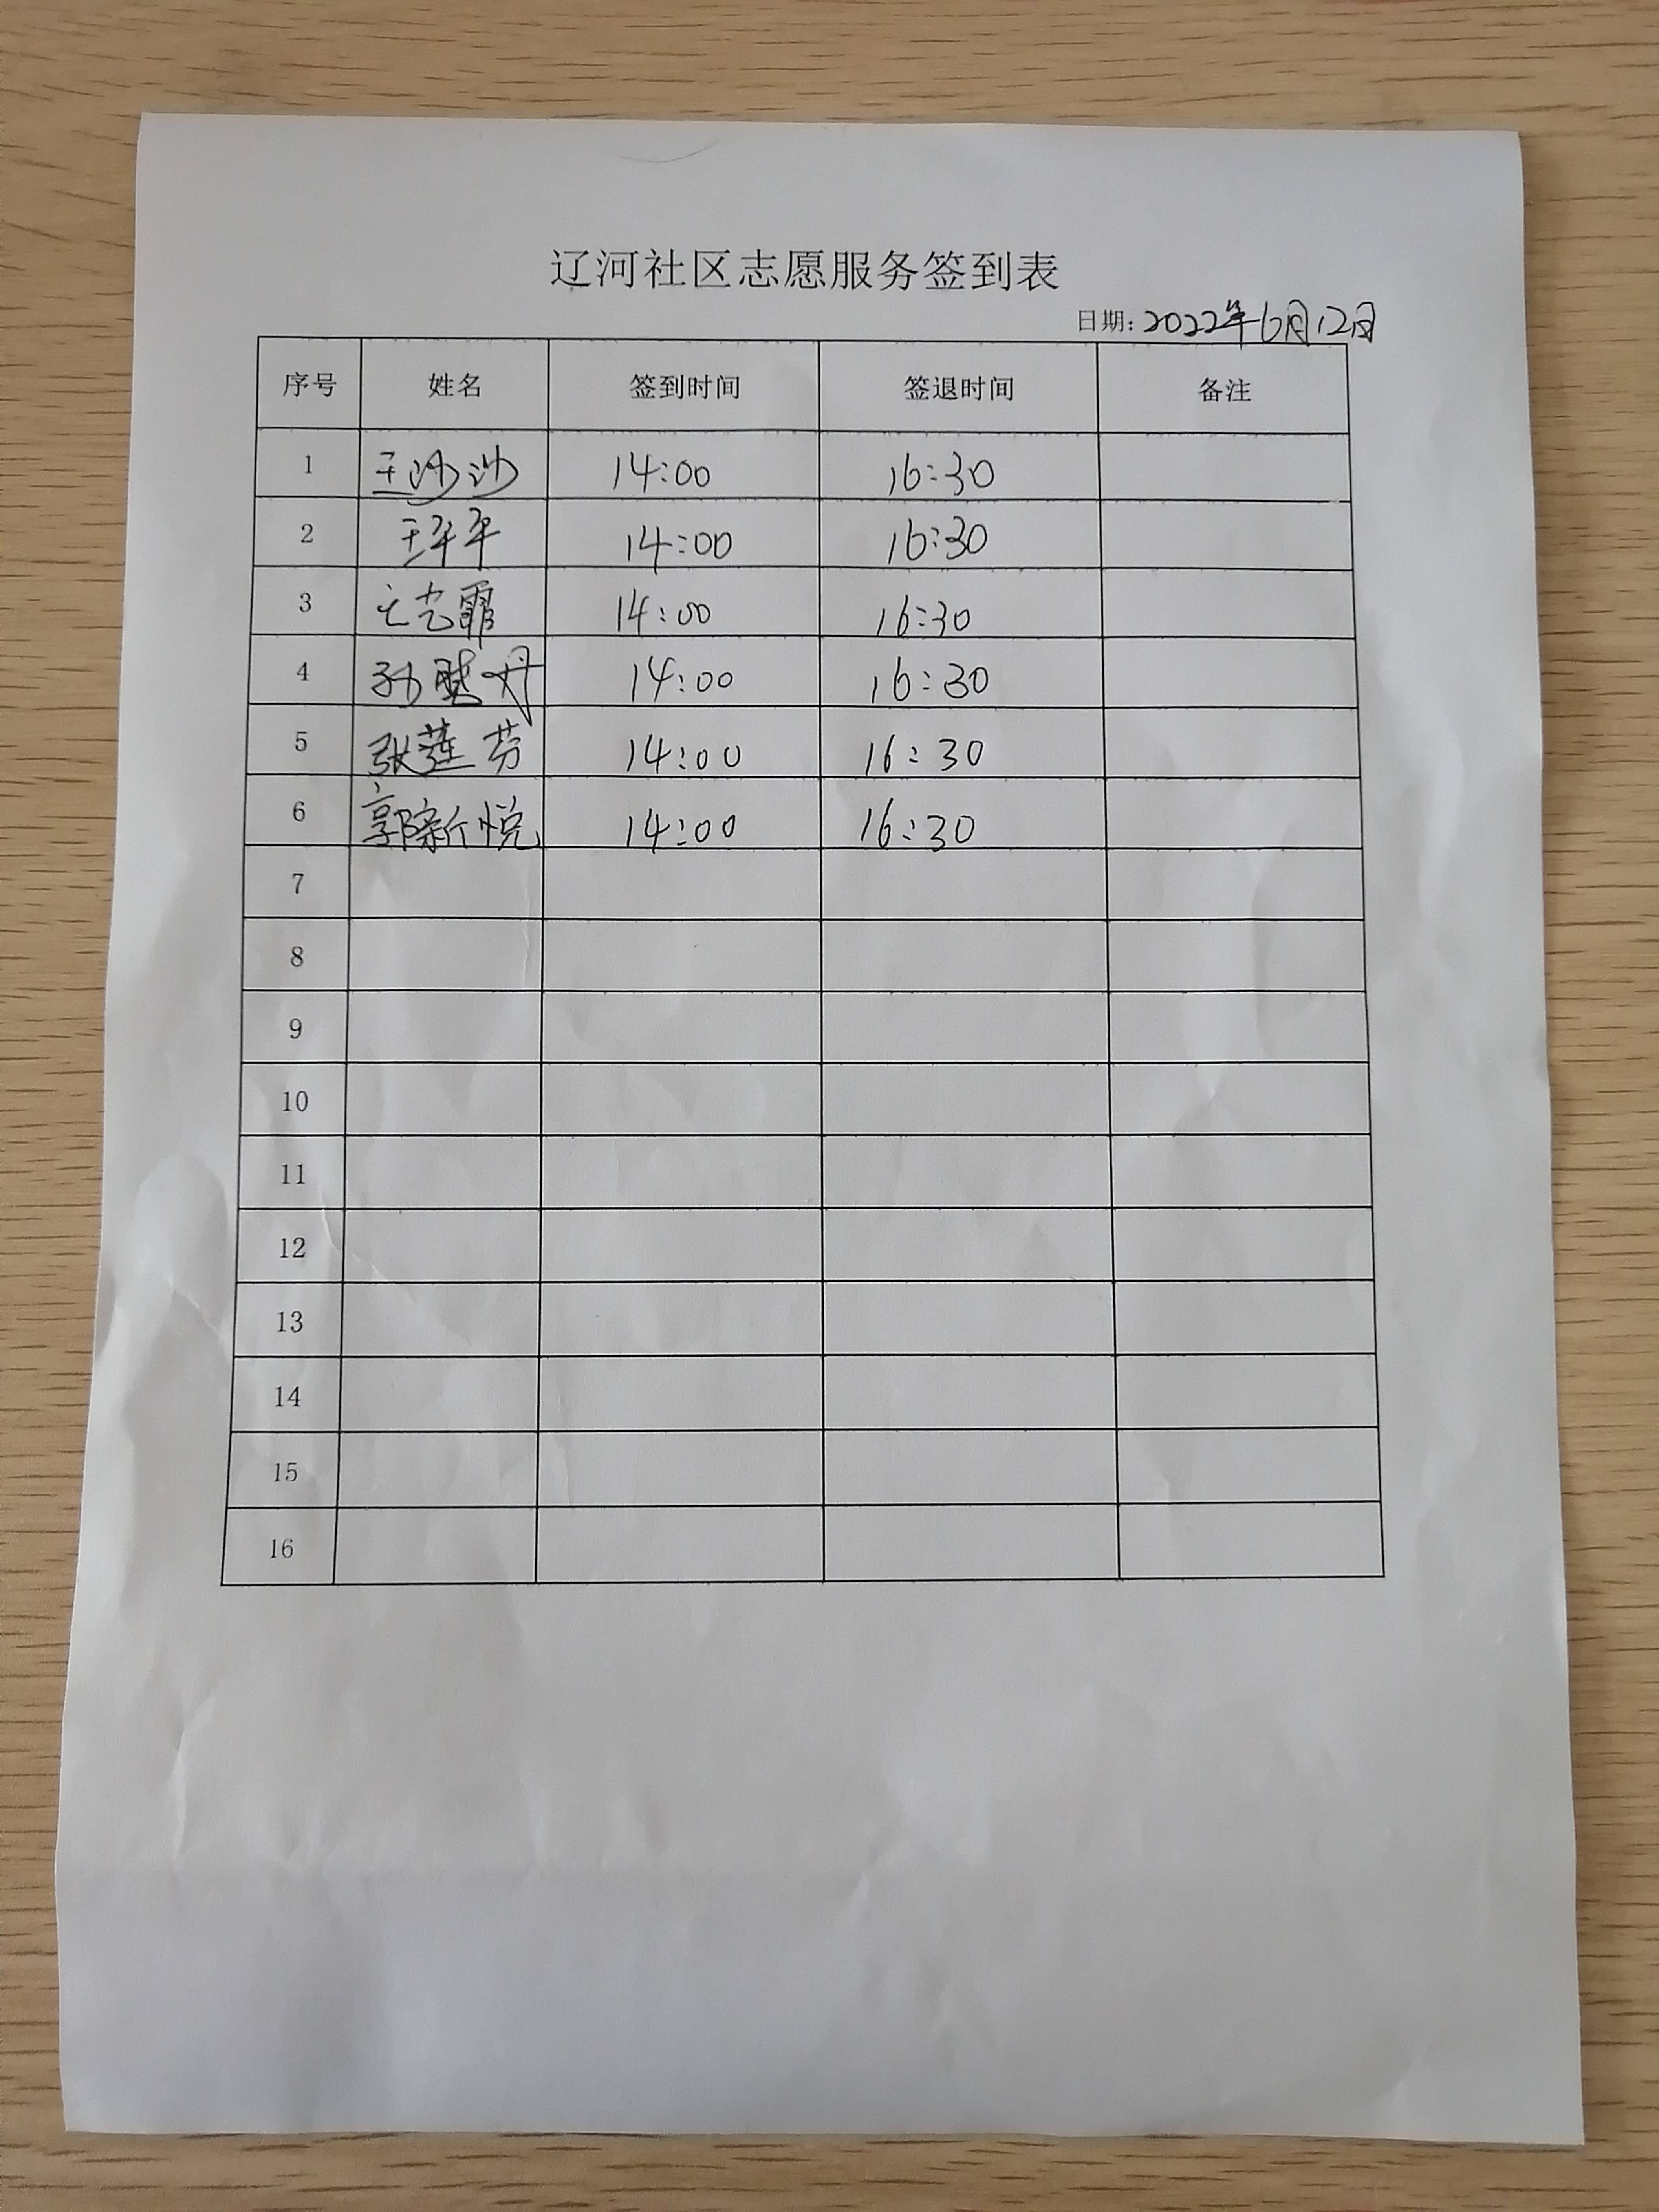 辽河社区志愿服务签到表
日期：2022年6月12日
序号 姓名 签到时间 签退时间 备注
1 王沙沙 14:00 16:30
2 王平平 14:00 16:30
3 14:00 16:30
4 孙 丹 14:00 16:30
5 张莲芬 14:00 16:30
6 郭新悦 14:00 16:30
7
8
9
10
11
12
13
14
15
16